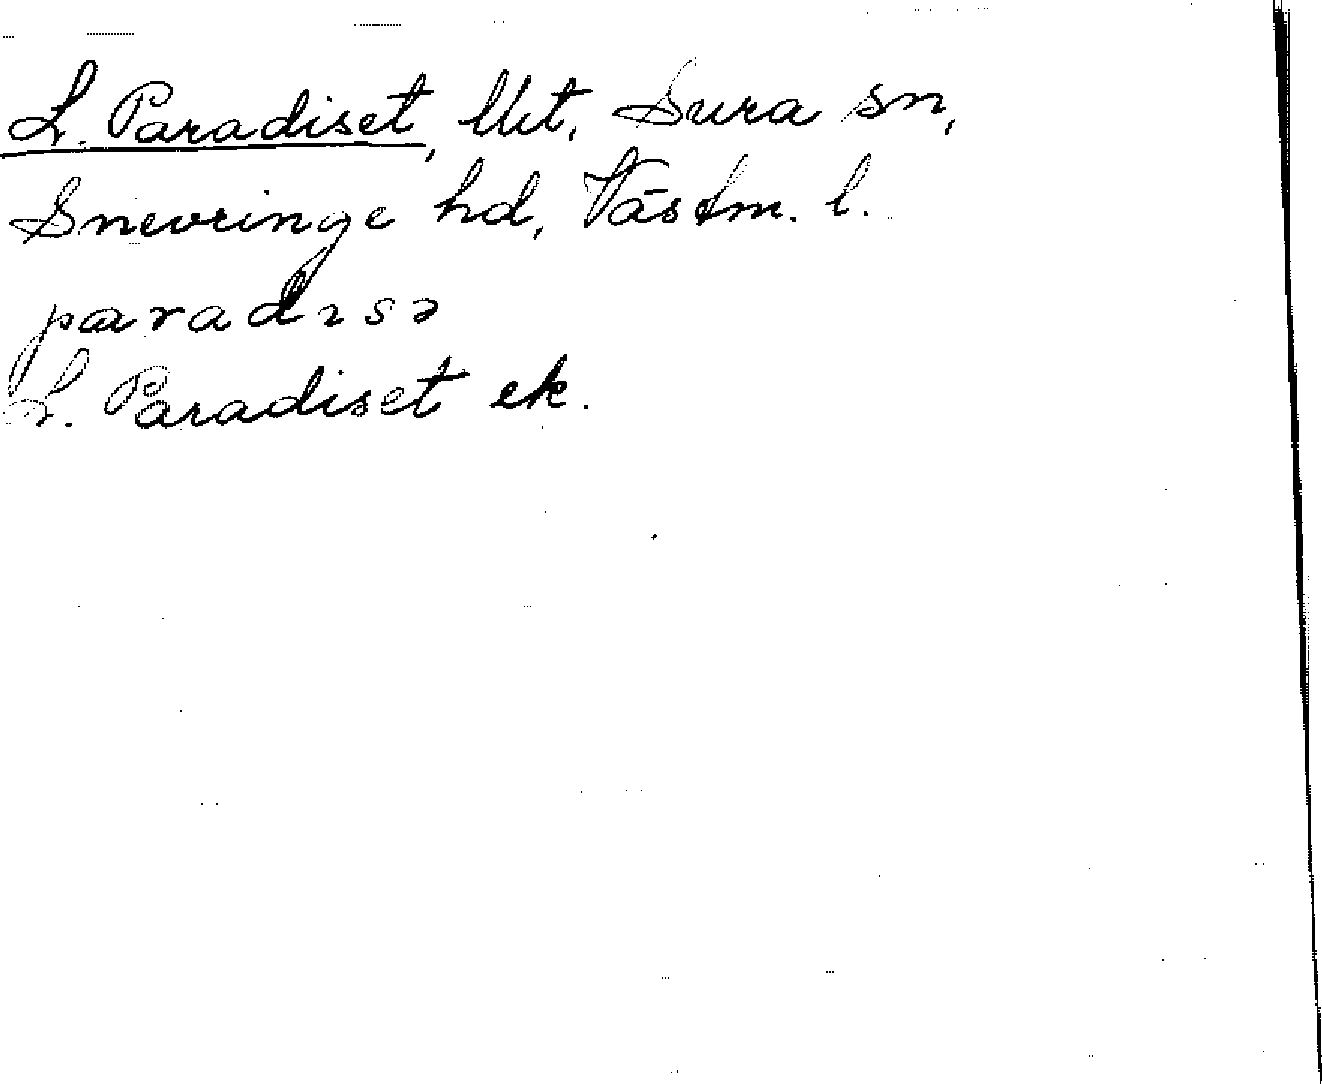 L. Paradiset, Utt. Sura sn,
Snevringe hd, Västm. l.
paradɩsə
L. Paradiset ek.